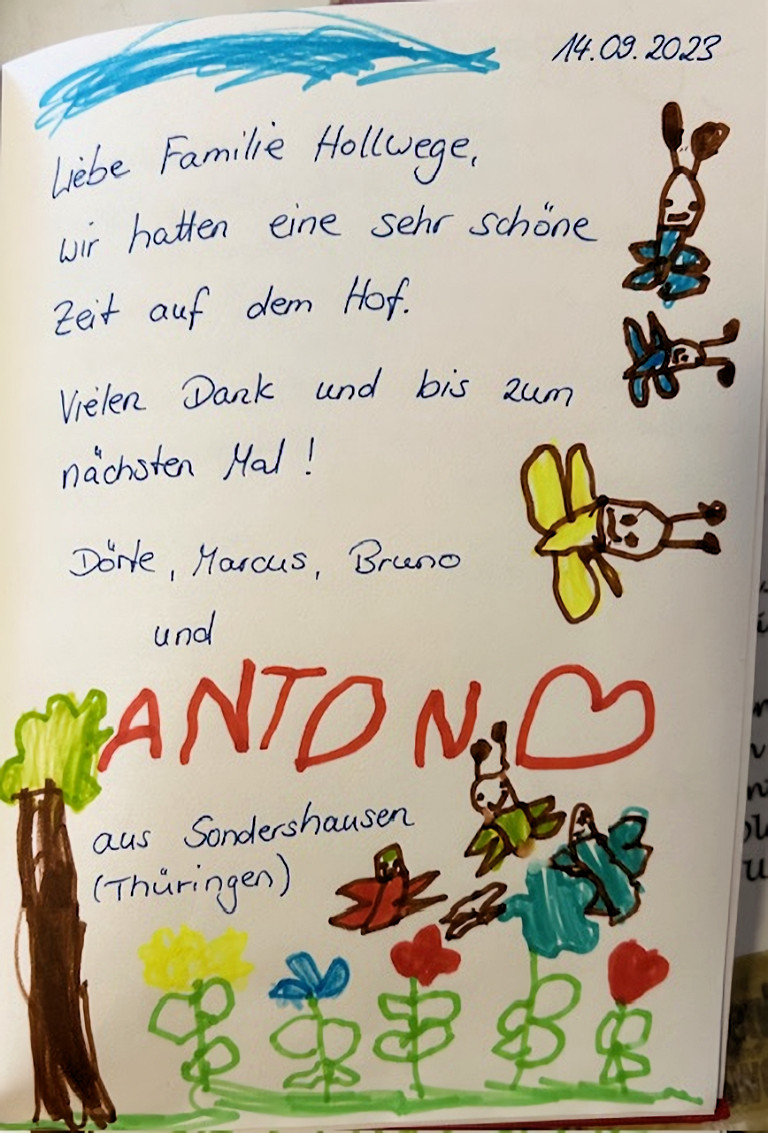 14.09.2023
Liebe Familie Hollwege,
wir hatten eine sehr schöne
Zeit auf dem Hof.
Vielen Dank und bis zum
nächsten Mal!
Dörte, Marcus, Bruno
und
ANTON
aus Sondershausen
(Thüringen)